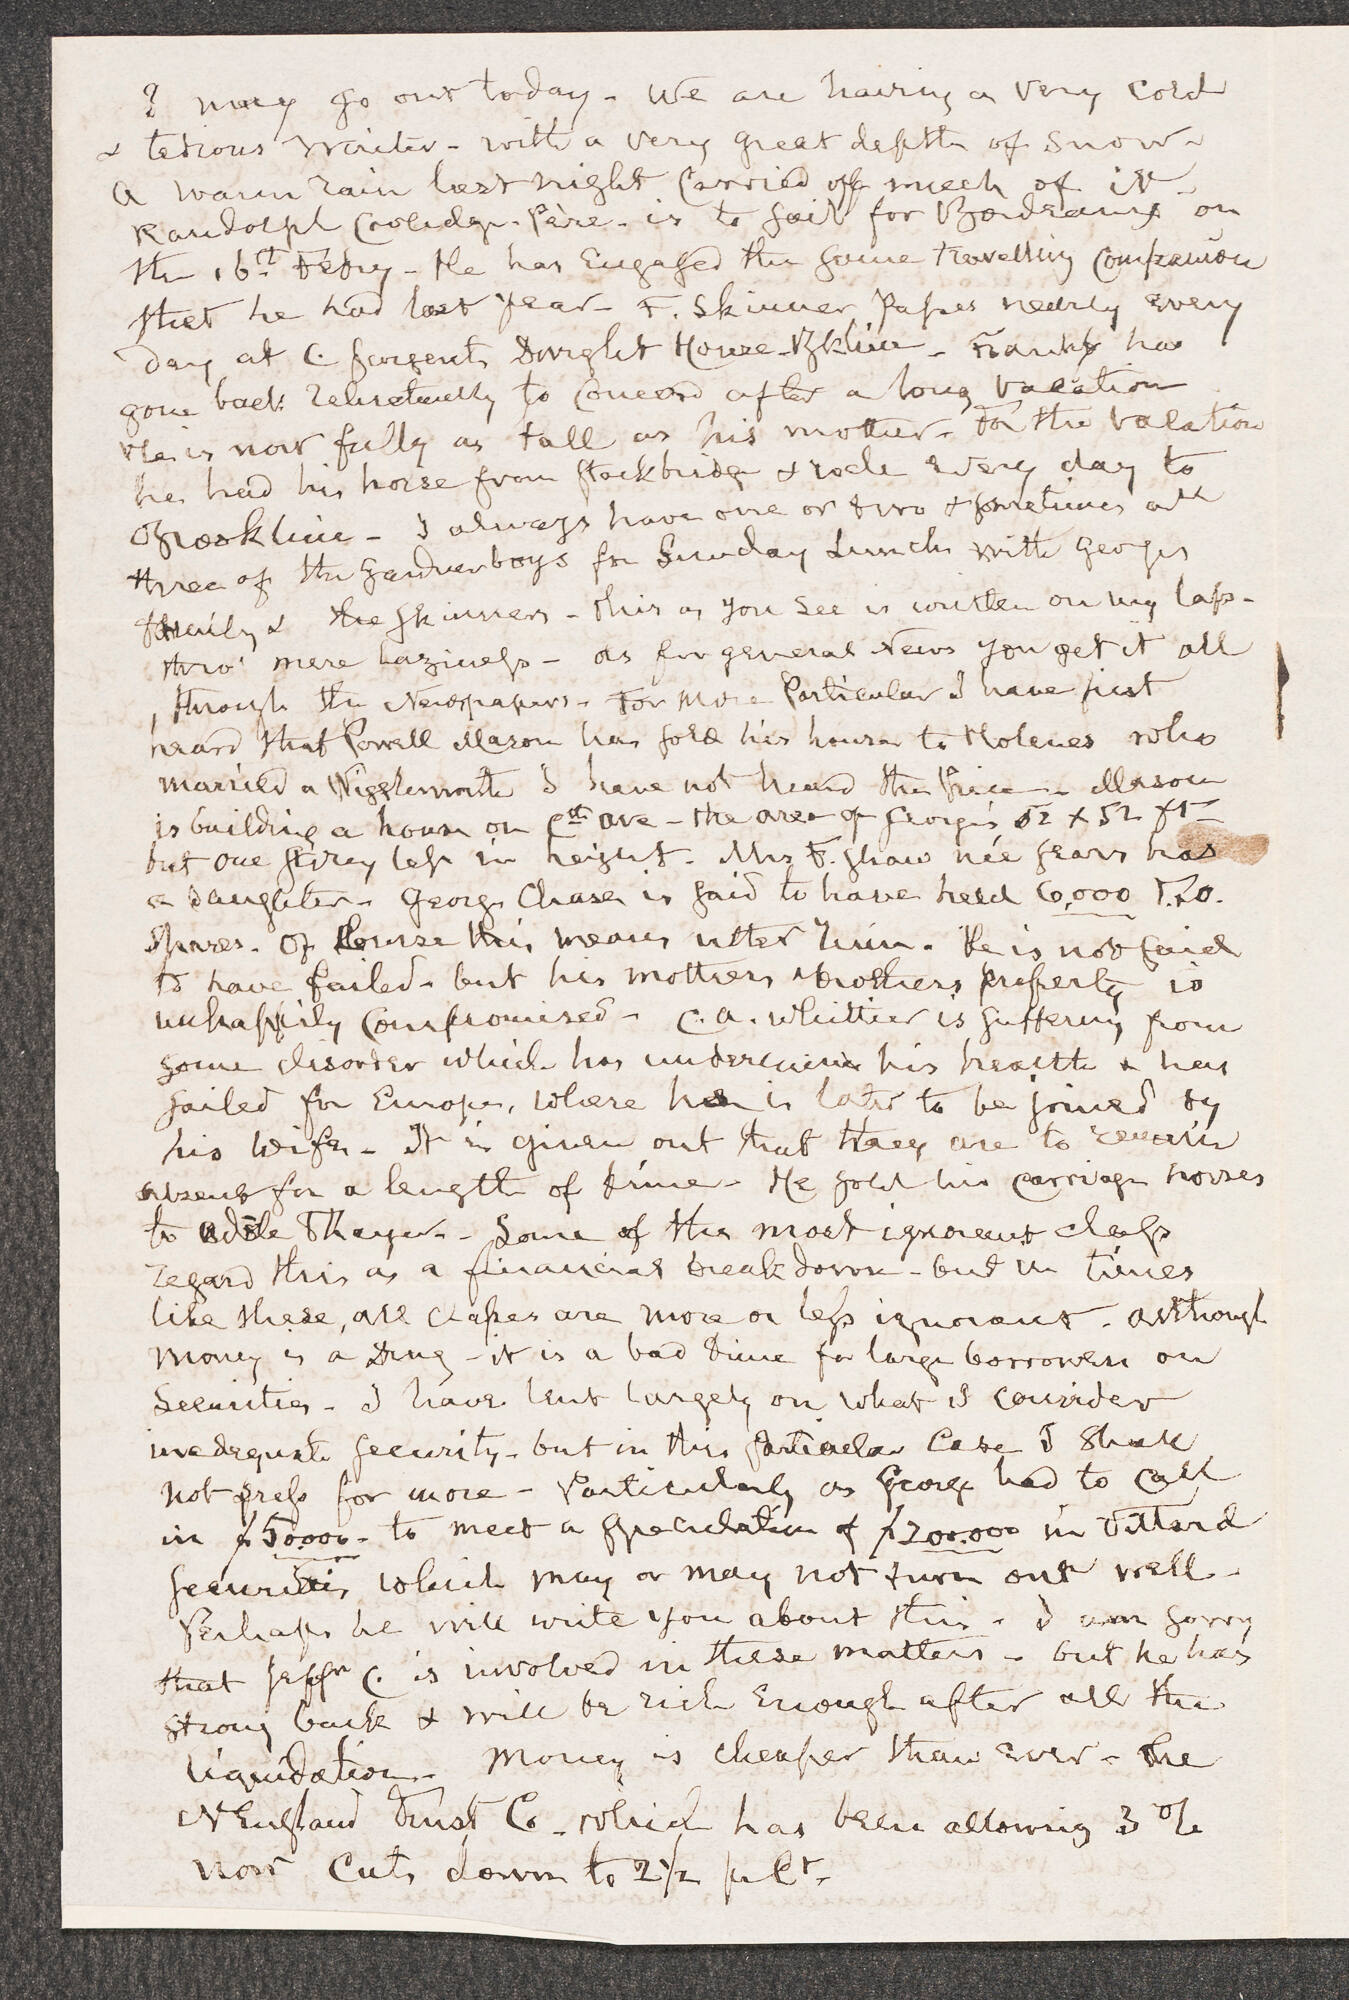 I may go out today - We are having a very cold
& tedious Winter - with a very great depth of Snow -
A warm rain last night Carried off much of it -
Randolph Coolidge - Père - is to sail for Bordeaux on
the 16th Febry - He has Engaged the same travelling Companion
that he had last year - F. Skinner Passes nearly every
day at C. Sargent's Dwight House - Bkline - Frank has
gone back reluctantly to Concord after a long Vacation
He is now fully as tall as his mother - For the Vacation
he had his horse from Stockbridge & rode every day to
Brookline - I always have one or two & sometimes all
three of the Gardner boys for Sunday Lunch with Georges
family & the Skinners - this as you see is written on my lap -
thro' mere laziness - As for general News you get it all
through the Newspapers - For more Particular I have just
heard that Powell Mason has sold his house to Holmes who
married a Wigglesworth I have not heard the Price - Mason
is building a house on Cth Ave - the area of George's 52 x 52
but one Story less in height - Mrs F. Shaw née Sears has
a Daughter - George Chase is said to have held 6,000
Shares - Of Course this means utter ruin - He is not said
to have failed - but his mothers & brothers property is
unhappily Compromised - C. A. Whittier is suffering from
some disorder which has undermined his health & has
sailed for Europe, where he is later to be joined by
his Wife - It is given out that they are to remain
absent for a length of time - He sold his Carriage horses
to Adele Thayer - Some of the most ignorant class
regard this as a financial breakdown - but in times
like these, all classes are more or less ignorant - Although
Money is a Drug - it is a bad time for large borrowers on
Securities - I have lent largely on what I consider
inadequate security - but in this particular Case I shall
not press for more - Particularly as George had to Call
in $50.000 - to meet a Speculation of $200.000 in Villard
Securities which may or may not turn out well -
Perhaps he will write you about this - I am sorry
that Jeffn C. is involved in these matters - but he has
strong back & will be rich Enough after all the
liquidation - Money is cheaper than Ever - The
N England Trust Co - which has been allowing 3 %
now Cuts down to 2 1/2 pr Ct -